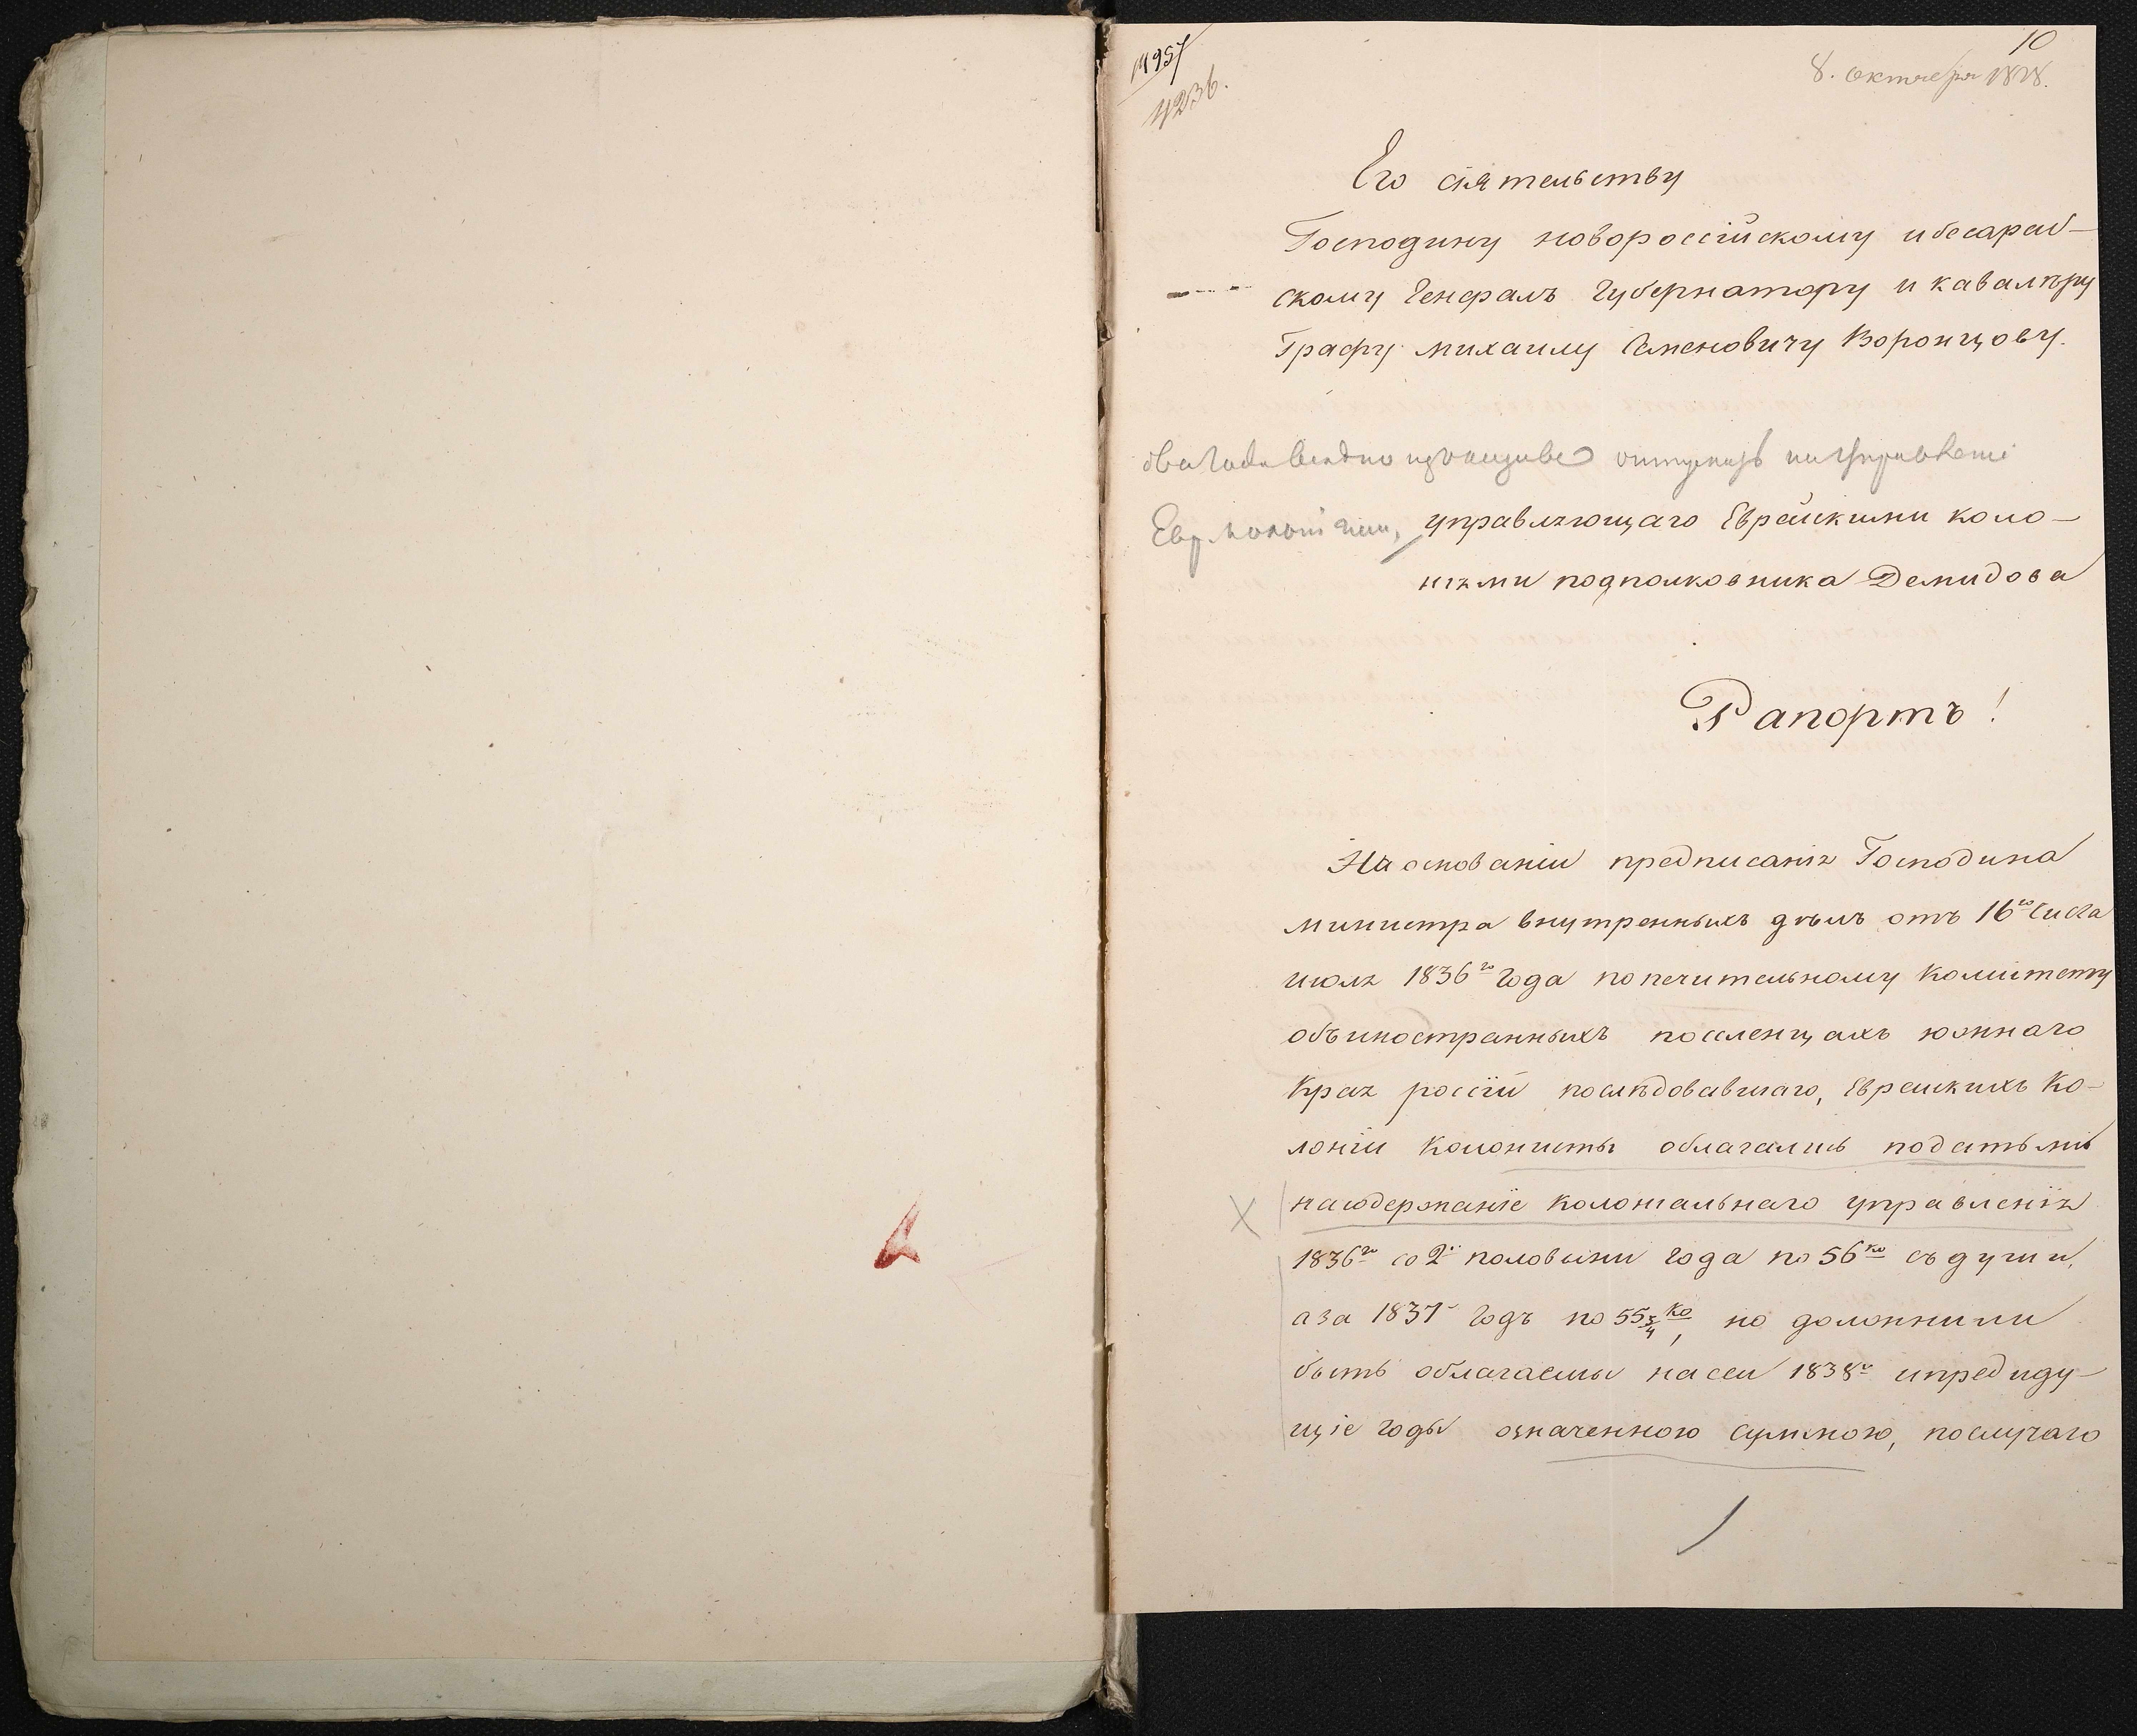 10
8. октября 1838.
4236.
Его сіятельству
Господину новороссійскому и бесараб-
скому Генералъ Губернатору и кавалѣру
Графу михаилу Семеновичу Воронцову.
управляющаго Еврейскими коло-
ніями подполковника Демидова
Рапортъ!
На основаніи предписанія Господина
министра внутренныхъ дѣлъ отъ 16го числа
июля 1836го года попечительному комитету
объ иностранныхъ поселенцахъ южнаго
края россіи последовавшаго, Еврейкихъ ко-
лоніи колонисты облагались податьми
на содержаніе колоніальнаго управленія
1836го со 2й половыни года по 56ко съ души,
а за 1837 годъ по 55¾ ко, но должни ли
быть облагаемы на сеи 1838й и предиду-
щіе годы означенною суммою, по случаю